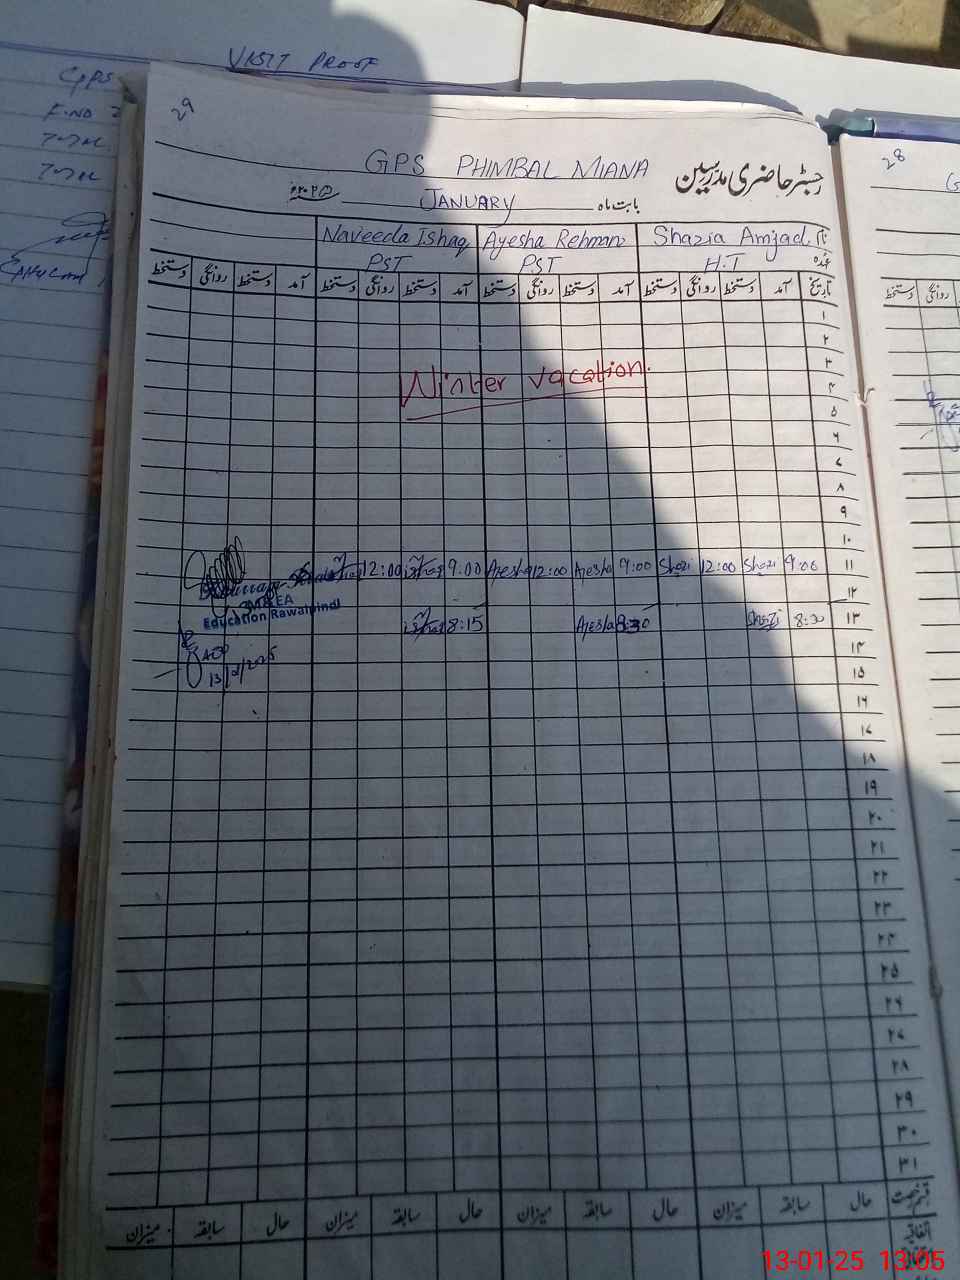 VISIT PROOF
GPPS
F.NO 2
29
28
GPS PHIMBAL MIANA
رجسٹر حاضری مدرسین
بابت ماہ JANUARY
نام Shazia Amjad Ayesha Rehman Naveeda Ishaq
عہدہ H.T PST PST
تاریخ آمد دستخط روانگی دستخط آمد دستخط روانگی دستخط آمد دستخط روانگی دستخط آمد دستخط روانگی دستخط
روانگی دستخط
۱
۲
۳
Winter vacation.
۴
۵
۶
۷
۸
۹
۱۰
۱۱ 9:00 Shazi 12:00 Shazi 9:00 Ayesha 12:00 Ayesha 9:00 12:00
M&EA
Education Rawalpindi
۱۲
۱۳ 8:30 Shazi 8:30 Ayesha 8:15
۱۴
۱۵
13/01/2025
۱۶
۱۷
۱۸
۱۹
۲۰
۲۱
۲۲
۲۳
۲۴
۲۵
۲۶
۲۷
۲۸
۲۹
۳۰
۳۱
قسم رخصت حال سابقہ میزان حال سابقہ میزان حال سابقہ میزان حال سابقہ میزان
اتفاقیہ
13-01-25 13:05